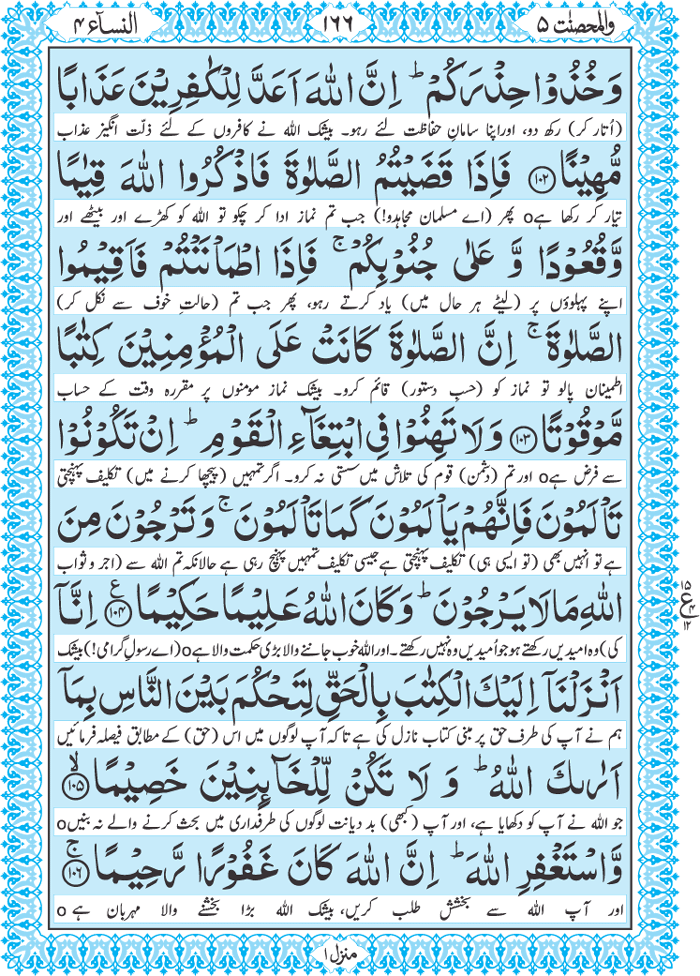 والمحصنٰت ۵ ۱۶۶ النسآء ۴
وَخُذُوۡا حِذۡرَكُمۡ ؕ اِنَّ اللّٰهَ اَعَدَّ لِلۡكٰفِرِيۡنَ عَذَابًا
(اُتار کر) رکھ دو، اوراپنا سامانِ حفاظت لئے رہو۔ بیشک اللہ نے کافروں کے لئے ذلّت انگیز عذاب
مُّهِيۡنًا ﴿۱۰۲﴾ فَاِذَا قَضَيۡتُمُ الصَّلٰوةَ فَاذۡكُرُوا اللّٰهَ قِيٰمًا
تیار کر رکھا ہےo پھر (اے مسلمان مجاہدو!) جب تم نماز ادا کر چکو تو اللہ کو کھڑے اور بیٹھے اور
وَّقُعُوۡدًا وَّ عَلٰى جُنُوۡبِكُمۡ ۚ فَاِذَا اطۡمَاۡنَنۡتُمۡ فَاَقِيۡمُوا
اپنے پہلوؤں پر (لیٹے ہر حال میں) یاد کرتے رہو، پھر جب تم (حالتِ خوف سے نکل کر)
الصَّلٰوةَ ۚ اِنَّ الصَّلٰوةَ كَانَتۡ عَلَى الۡمُؤۡمِنِيۡنَ كِتٰبًا
اطمینان پالو تو نماز کو (حسبِ دستور) قائم کرو۔ بیشک نماز مومنوں پر مقررہ وقت کے حساب
مَّوۡقُوۡتًا ﴿۱۰۳﴾ وَلَا تَهِنُوۡا فِى ابۡتِغَآءِ الۡقَوۡمِ ؕ اِنۡ تَكُوۡنُوۡا
سے فرض ہےo اور تم (دشمن) قوم کی تلاش میں سستی نہ کرو۔ اگر تمہیں (پیچھا کرنے میں) تکلیف پہنچتی
تَاۡلَمُوۡنَ فَاِنَّهُمۡ يَاۡلَمُوۡنَ كَمَا تَاۡلَمُوۡنَ ۚ وَتَرۡجُوۡنَ مِنَ
ہے تو انہیں بھی (تو ایسی ہی) تکلیف پہنچتی ہے جیسی تکلیف تمہیں پہنچ رہی ہے حالانکہ تم اللہ سے (اجر و ثواب
اللّٰهِ مَا لَا يَرۡجُوۡنَ ؕ وَكَانَ اللّٰهُ عَلِيۡمًا حَكِيۡمًا ﴿۱۰۴﴾ ع اِنَّاۤ
۱۵ ع ۴ ۱۲
کی) وہ امیدیں رکھتے ہو جو اُمیدیں وہ نہیں رکھتے۔ اور اللہ خوب جاننے والا بڑی حکمت والا ہےo (اے رسولِ گرامی!) بیشک
اَنۡزَلۡنَاۤ اِلَيۡكَ الۡكِتٰبَ بِالۡحَقِّ لِتَحۡكُمَ بَيۡنَ النَّاسِ بِمَاۤ
ہم نے آپ کی طرف حق پر مبنی کتاب نازل کی ہے تاکہ آپ لوگوں میں اس (حق) کے مطابق فیصلہ فرمائیں
اَرٰٮكَ اللّٰهُ ؕ وَ لَا تَكُنۡ لِّلۡخَآٮِٕنِيۡنَ خَصِيۡمًا ﴿۱۰۵﴾ ۙ
جو اللہ نے آپ کو دکھایا ہے، اور آپ (کبھی) بد دیانت لوگوں کی طرفداری میں بحث کرنے والے نہ بنیںo
وَّاسۡتَغۡفِرِ اللّٰهَ ؕ اِنَّ اللّٰهَ كَانَ غَفُوۡرًا رَّحِيۡمًا ﴿۱۰۶﴾ ۚ
اور آپ اللہ سے بخشش طلب کریں، بیشک اللہ بڑا بخشنے والا مہربان ہےo
منزل ۱